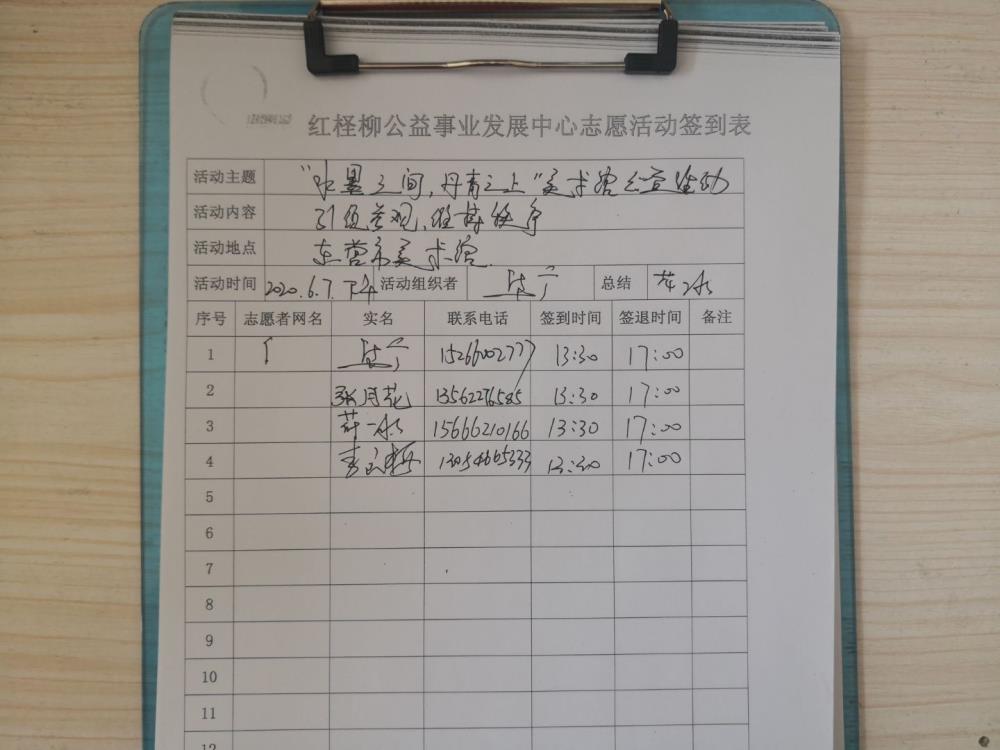 红柽柳公益事业发展中心志愿活动签到表
活动主题 "水墨之间,丹青之上"美术馆公益活动
活动内容 引领参观,维持秩序
活动地点 东营市美术馆
活动时间 2020.6.7.下午 活动组织者 总结
序号 志愿者网名 实名 联系电话 签到时间 签退时间 备注
1 15266002777 13:30 17:00
2 张月花 13562276585 13:30 17:00
3 15666210166 13:30 17:00
4 13:30 17:00
5
6
7
8
9
10
11
12